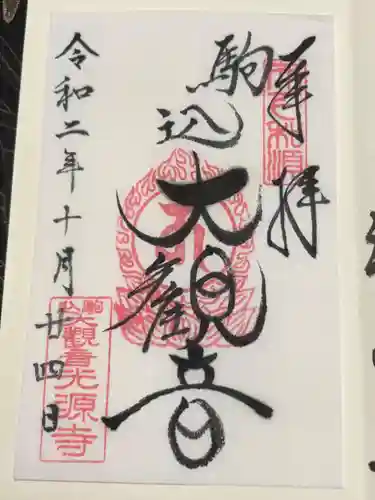 奉拝
駒込
大観音
令和二年十月廿四日
駒込
大観音光源寺